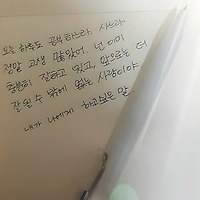 오늘 하루도 공부하느라, 사느라
정말 고생 많았어. 넌 이미
충분히 잘하고 있고, 앞으로는 더
잘될 수 밖에 없는 사람이야
내가 나에게 하고싶은 말..